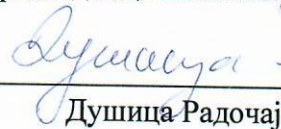 Душица
Душица Радочај